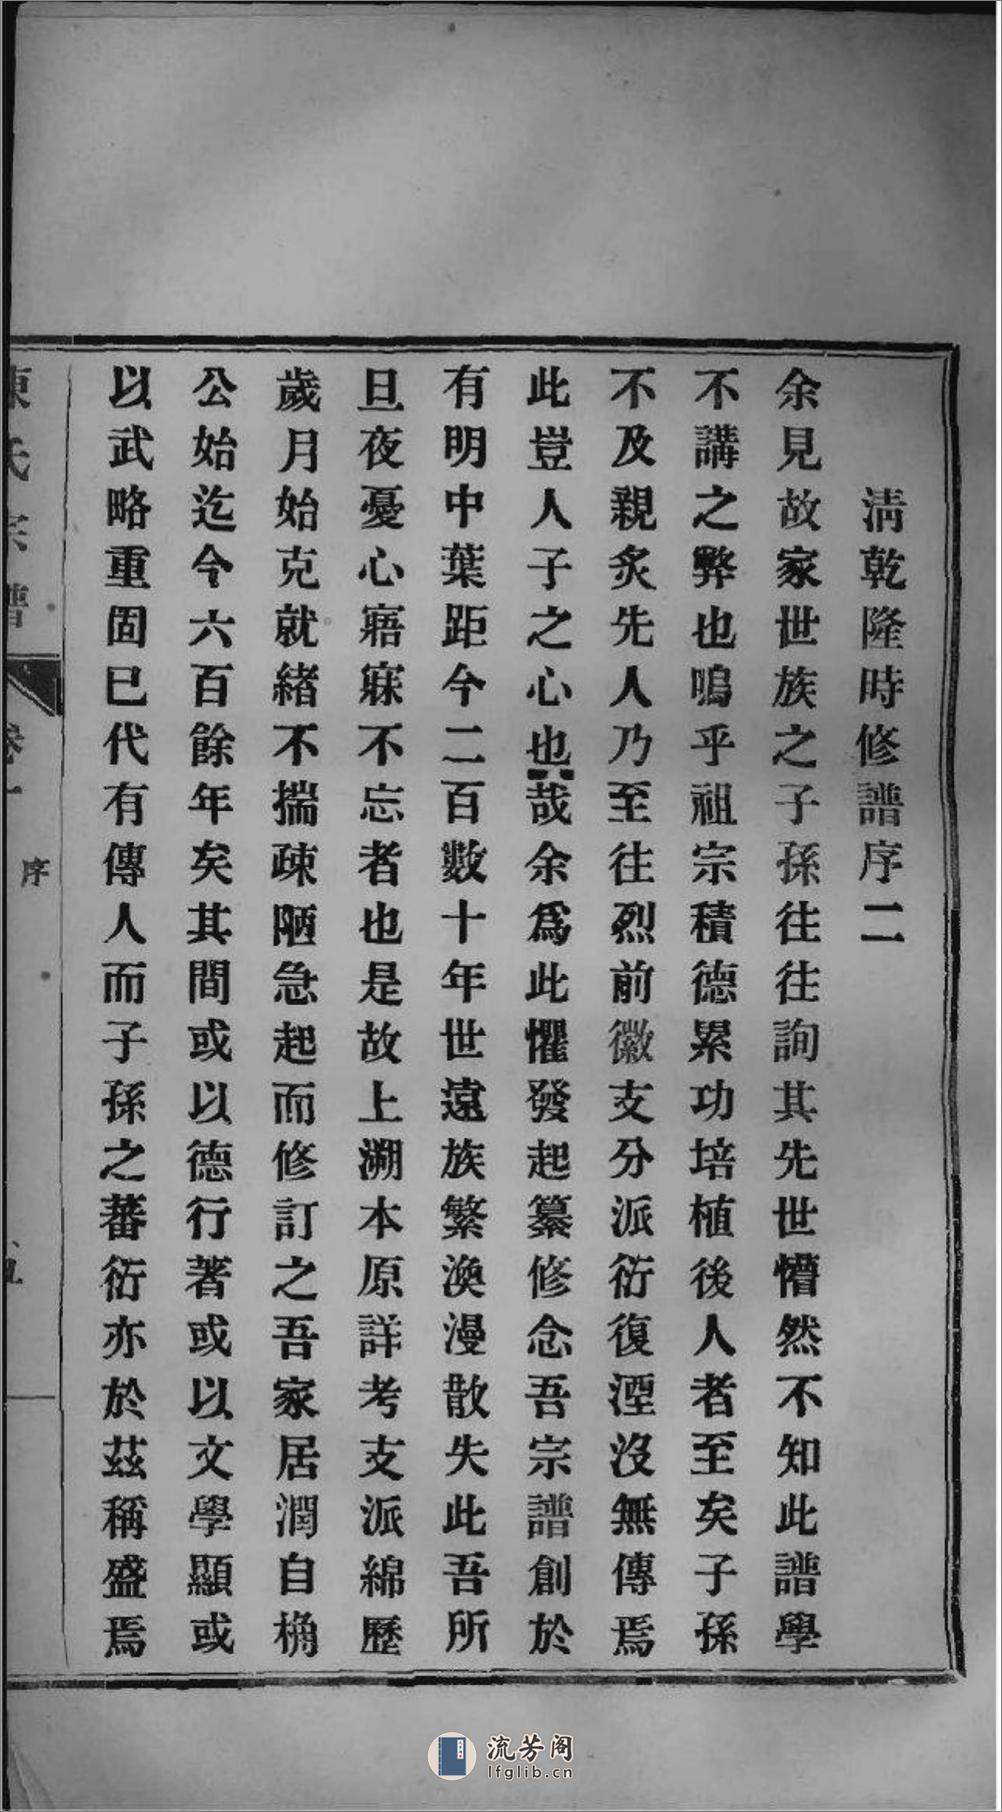 清乾隆時修譜序二
余見故家世族之子孫往往詢其先世懵然不知此譜學
不講之弊也嗚乎祖宗積德累功培植後人者至矣子孫
不及親炙先人乃至往烈前徽支分派衍復湮沒無傳焉
此豈人子之心也哉余爲此懼發起纂修念吾宗譜創於
有明中葉距今二百數十年世遠族繁渙漫散失此吾所
旦夜憂心寤寐不忘者也是故上溯本原詳考支派綿歷
歲月始克就緒不揣疎陋急起而修訂之吾家居潤自桷
公始迄今六百餘年矣其間或以德行著或以文學顯或
以武略重固已代有傳人而子孫之蕃衍亦於茲稱盛焉
氏宗譜
卷一
序
五
流芳阁
lfglib.cn